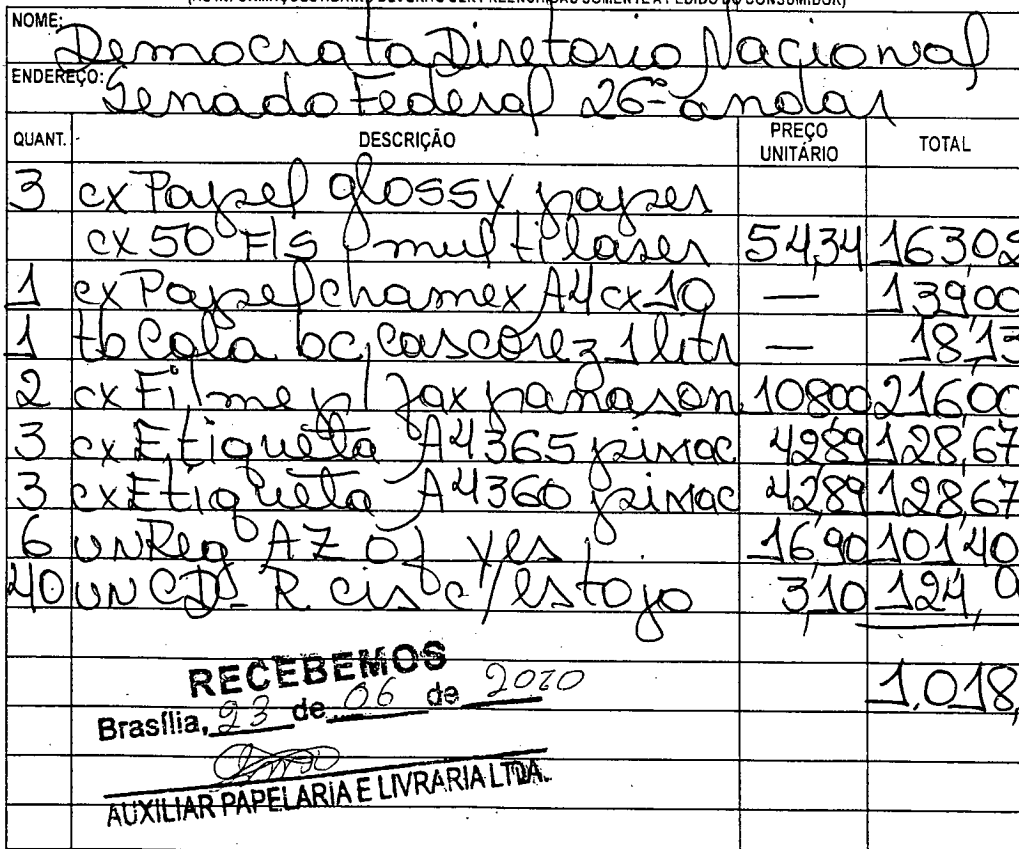 NOME: Democrata Diretorio Nacional
ENDEREÇO: Senado Federal 26º andar
QUANT. DESCRIÇÃO PREÇO UNITÁRIO TOTAL
3 cx Papel glossy paper
cx 50 Fls multilaser 54,34 163,02
1 cx Papel chamex A4 cx 10 — 139,00
1 tb Cola bc, cascorez 1 litr — 18,13
2 cx Filme p/ fax panason 108,00 216,00
3 cx Etiqueta A4365 pimac 42,89 128,67
3 cx Etiqueta A4360 pimac 42,89 128,67
6 un Reg AZ of yes 16,90 101,40
40 un CD-R cis c/ estojo 3,10 124,0
1.018,
RECEBEMOS
Brasília, 23 de 06 de 2010
AUXILIAR PAPELARIA E LIVRARIA LTDA.